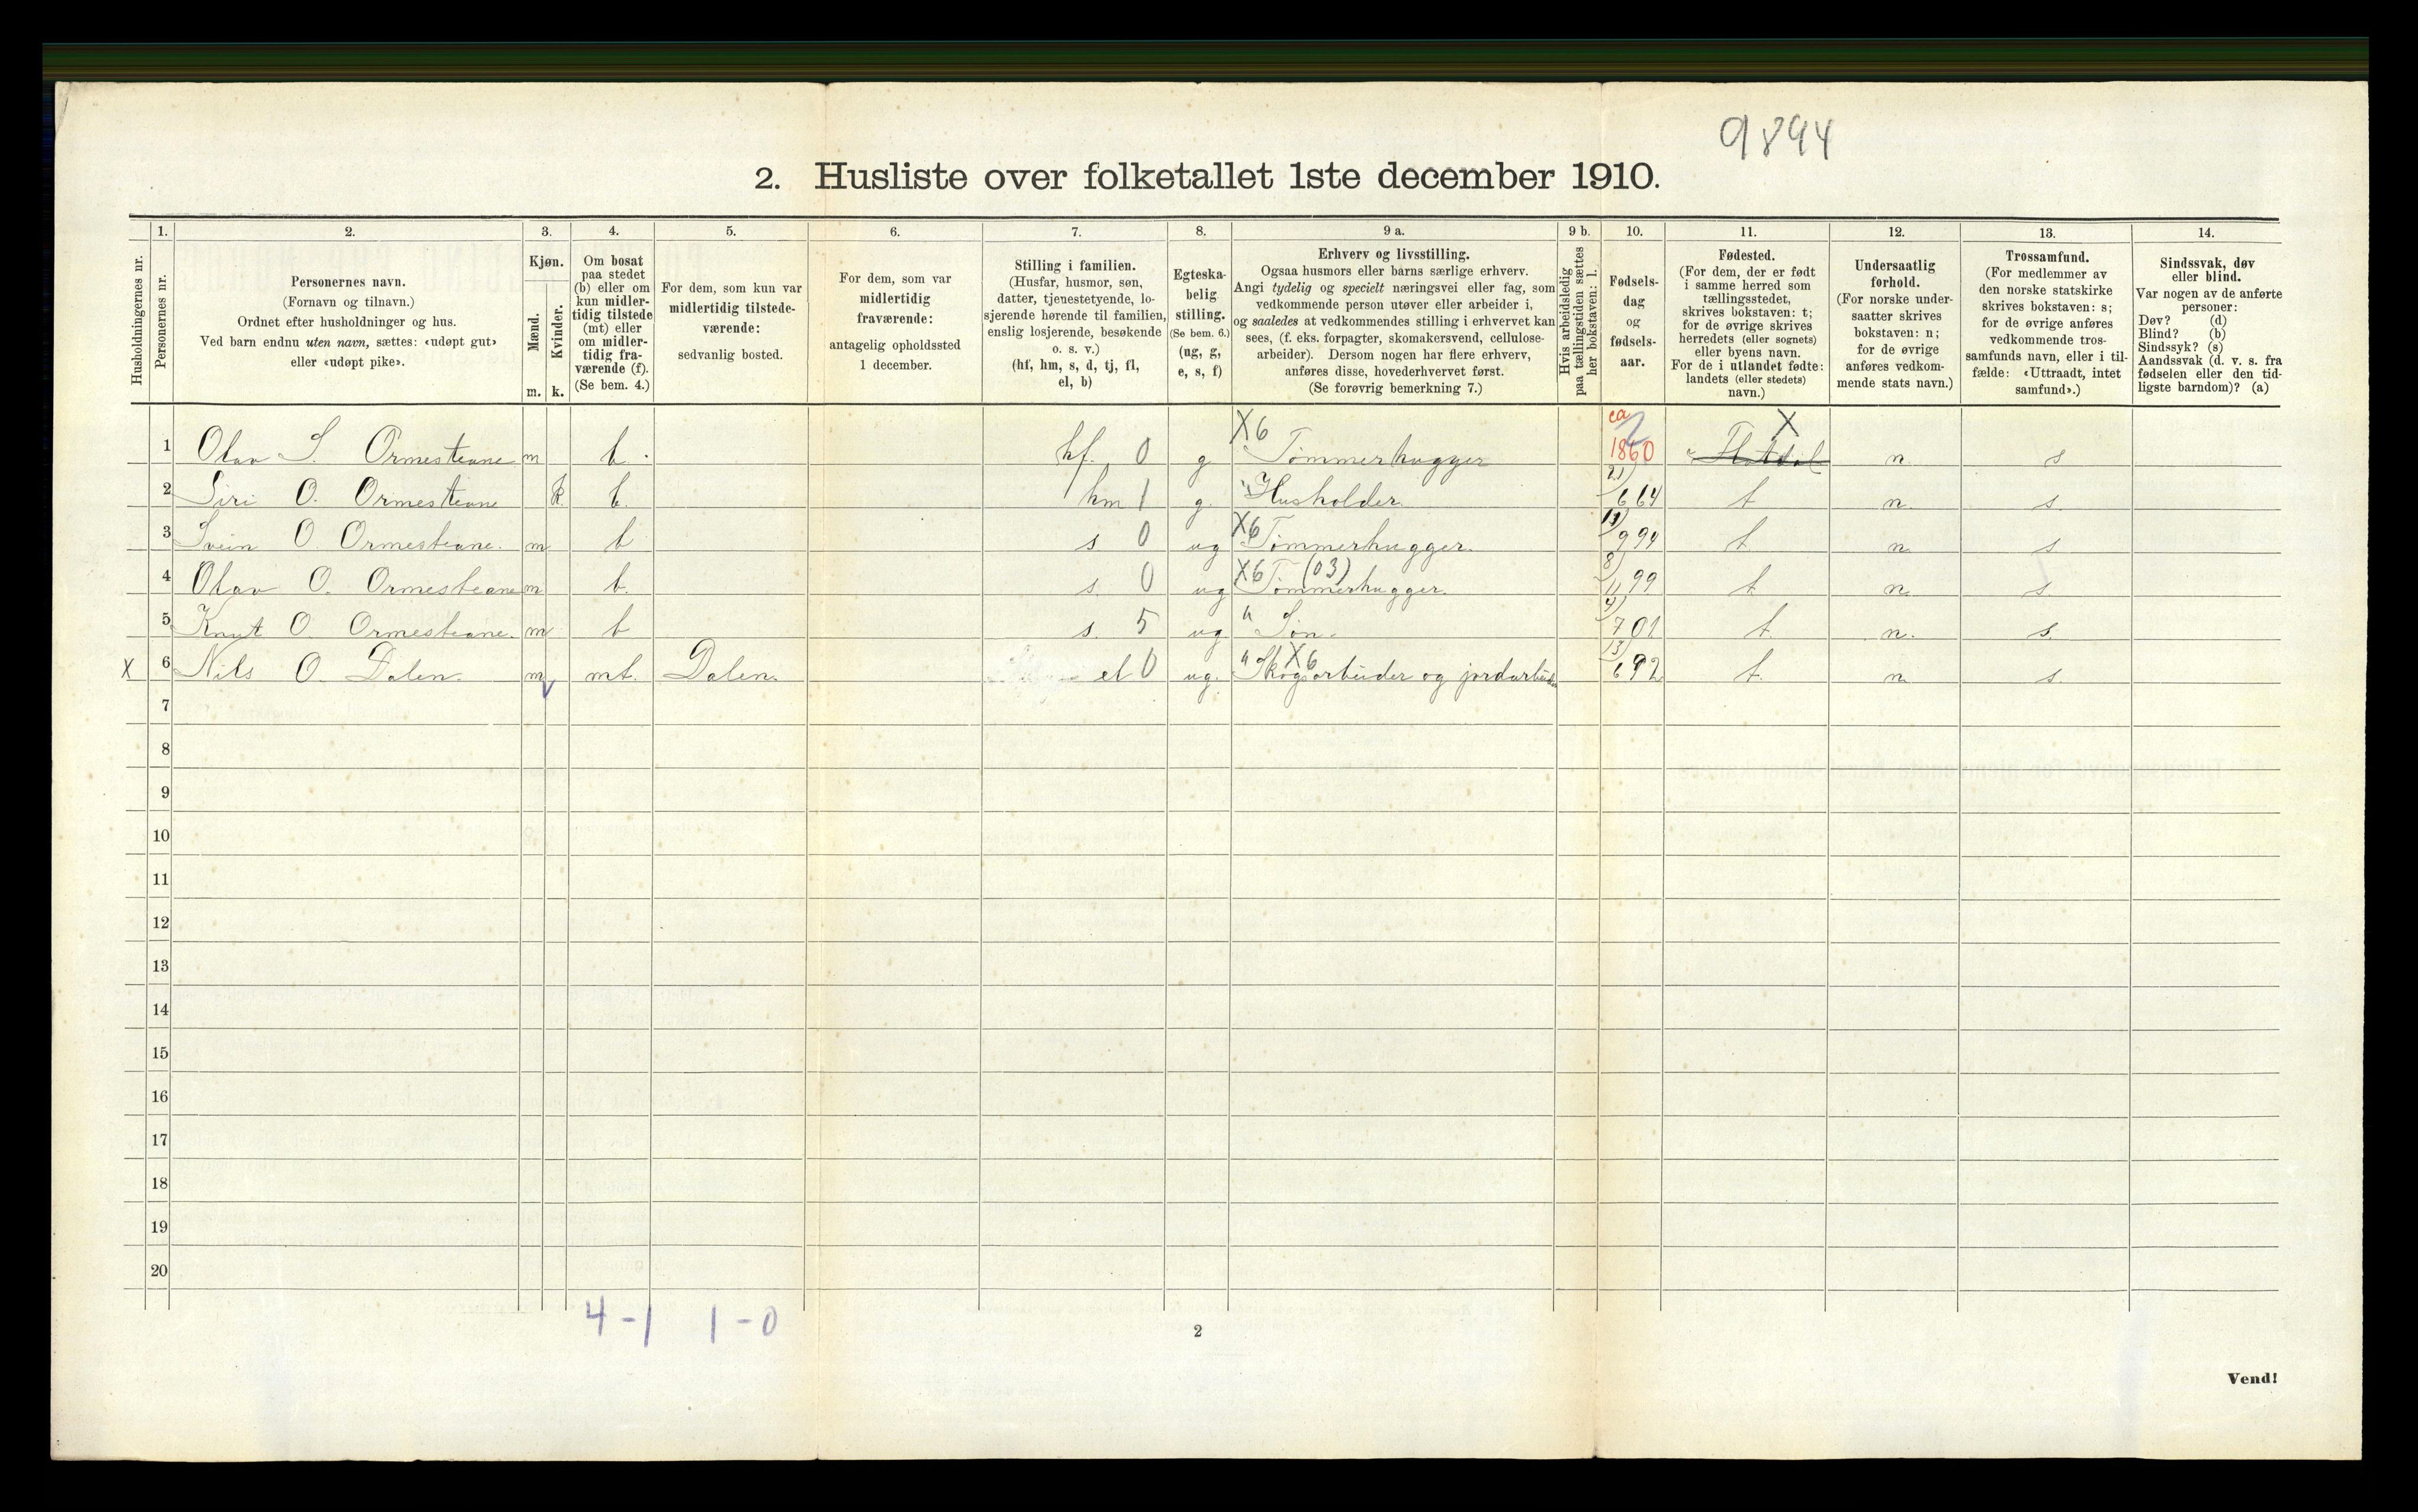 9894
2. Husliste over folketallet 1ste december 1910.
Husholdningernes nr.
1.
Personernes nr.
2.
Personernes navn.
(Fornavn og tilnavn.)
Ordnet efter husholdninger og hus.
Ved barn endnu uten navn, sættes: «udøpt gut»
eller «udøpt pike».
3.
Kjøn.
Mænd.
Kvinder.
m. k.
4.
Om bosat
paa stedet
(b) eller om
kun midler-
tidig tilstede
(mt) eller
om midler-
tidig fra-
værende (f).
(Se bem. 4.)
5.
For dem, som kun var
midlertidig tilstede-
værende:
sedvanlig bosted.
6.
For dem, som var
midlertidig
fraværende:
antagelig opholdssted
1 december.
7.
Stilling i familien.
(Husfar, husmor, søn,
datter, tjenestetyende, lo-
sjerende hørende til familien,
enslig losjerende, besøkende
o. s. v.)
(hf, hm, s, d, tj, fl,
el, b)
8.
Egteska-
belig
stilling.
(Se bem. 6.)
(ug, g,
e, s, f)
9 a.
Erhverv og livsstilling.
Ogsaa husmors eller barns særlige erhverv.
Angi tydelig og specielt næringsvei eller fag, som
vedkommende person utøver eller arbeider i,
og saaledes at vedkommendes stilling i erhvervet kan
sees, (f. eks. forpagter, skomakersvend, cellulose-
arbeider). Dersom nogen har flere erhverv,
anføres disse, hovederhvervet først.
(Se forøvrig bemerkning 7.)
9 b.
Hvis arbeidsledig
paa tællingstiden sættes
her bokstaven: l.
10.
Fødsels-
dag
og
fødsels-
aar.
11.
Fødested.
(For dem, der er født
i samme herred som
tællingsstedet,
skrives bokstaven: t;
for de øvrige skrives
herredets (eller sognets)
eller byens navn.
For de i utlandet fødte:
landets (eller stedets)
navn.)
12.
Undersaatlig
forhold.
(For norske under-
saatter skrives
bokstaven: n;
for de øvrige
anføres vedkom-
mende stats navn.)
13.
Trossamfund.
(For medlemmer av
den norske statskirke
skrives bokstaven: s;
for de øvrige anføres
vedkommende tros-
samfunds navn, eller i til-
fælde: «Uttraadt, intet
samfund».)
14.
Sindssvak, døv
eller blind.
Var nogen av de anførte
personer:
Døv? (d)
Blind? (b)
Sindssyk? (s)
Aandssvak (d. v. s. fra
fødselen eller den tid-
ligste barndom)? (a)
1 Olav S. Ormesteane m b. hf. 0 g X6 Tømmerhugger ca 1860 X Flatdal n s
2 Siri O. Ormesteane k. b. hm 1 g. Husholder 21/6 64 t n. s.
3 Svein O. Ormesteane. m b ug s 0 X6 Tømmerhugger. 11/9 94 t n. s
4 Olav O. Ormesteane m b. s. 0 ug X6 (03) Tømmerhugger. 8/11 99 t n. s
5 Knut O. Ormesteane. m b s. 5 ug " Søn. 4/7 01 t. n. s.
X 6 Nils O. Dalen. m mt. Dalen. el 0 ug. " X6 Skogsarbeider og jordarbeider 13/6 92 t. n s.
7
8
9
10
11
12
13
14
15
16
17
18
19
20
4-1 1-0
2
Vend!